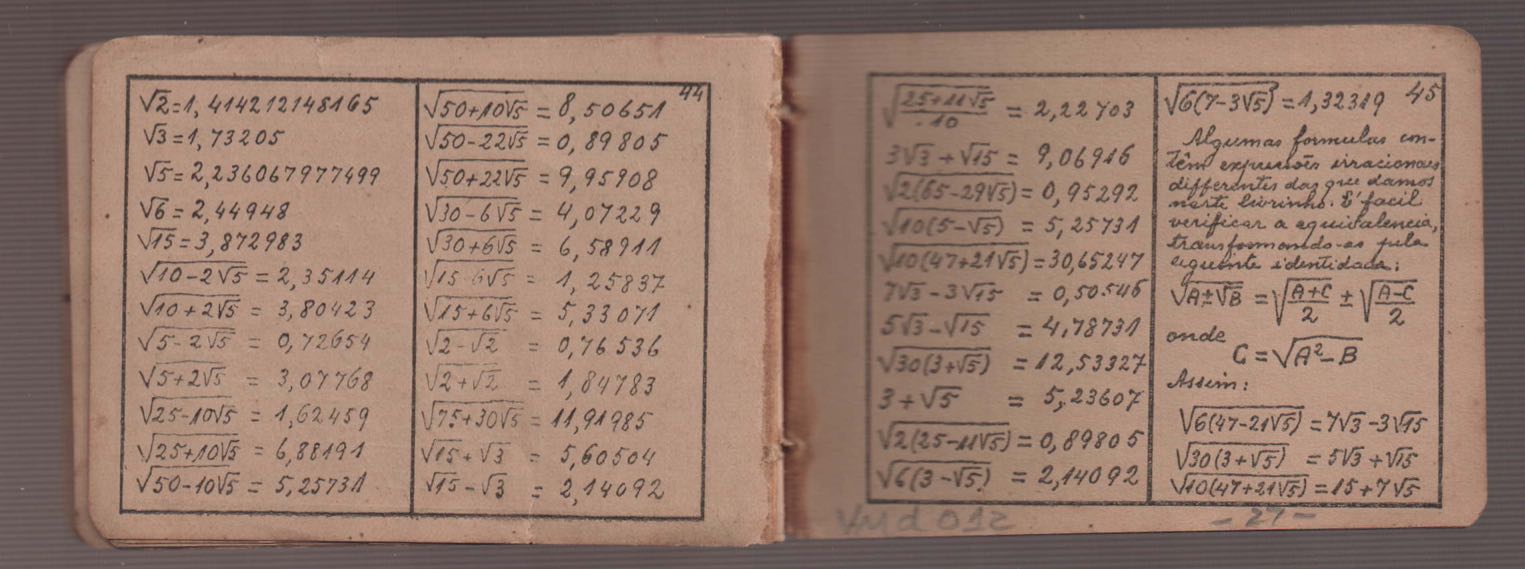 44
√2=1,414212148165
√3=1,73205
√5=2,236067977499
√6=2,44948
√15=3,872983
√(10-2√5)=2,35114
√(10+2√5)=3,80423
√(5-2√5)=0,72654
√(5+2√5)=3,07768
√(25-10√5)=1,62459
√(25+10√5)=6,88191
√(50-10√5)=5,25731
√(50+10√5)=8,50651
√(50-22√5)=0,89805
√(50+22√5)=9,95908
√(30-6√5)=4,07229
√(30+6√5)=6,58911
√(15-6√5)=1,25837
√(15+6√5)=5,33071
√(2-√2)=0,76536
√(2+√2)=1,84783
√(75+30√5)=11,91985
√15+√3=5,60504
√15-√3=2,14092
√((25+11√5)/10)=2,22703
3√3+√15=9,06916
√(2(65-29√5))=0,95292
√(10(5-√5))=5,25731
√(10(47+21√5))=30,65247
7√3-3√15=0,50546
5√3-√15=4,78731
√(30(3+√5))=12,53327
3+√5=5,23607
√(2(25-11√5))=0,89805
√(6(3-√5))=2,14092
√(6(7-3√5))=1,32319
45
Algumas formulas con-
têm expressões irracionaes
differentes das que damos
neste livrinho. E' facil
verificar a equivalencia,
transformando-as pela
seguinte identidade:
√(A±√B)=√((A+C)/2)±√((A-C)/2)
onde
C=√(A²-B)
Assim:
√(6(47-21√5))=7√3-3√15
√(30(3+√5))=5√3+√15
√(10(47+21√5))=15+7√5
-27-